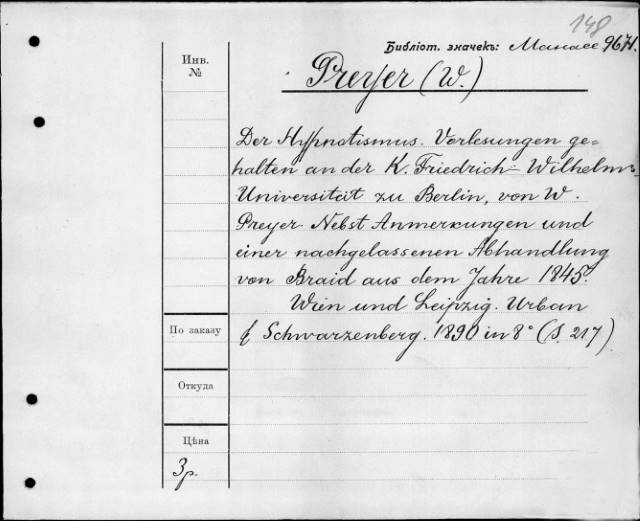 148
Библіот. значекъ: Манасе 967.
Инв.
№
Preyer (W.)
Der Hypnotismus. Vorlesungen ge-
halten an der K. Friedrich-Wilhelms-
Universität zu Berlin, von W.
Preyer. Nebst Anmerkungen und
einer nachgelassenen Abhandlung
von Braid aus dem Jahre 1845.
Wien und Leipzig. Urban
& Schwarzenberg. 1890 in 8° (S. 217)
По заказу
Откуда
Цѣна
3р.